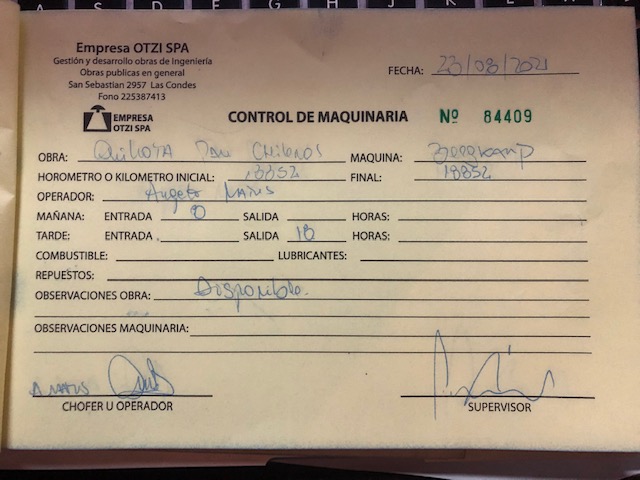 Empresa OTZI SPA
Gestión y desarrollo obras de Ingeniería
Obras publicas en general
San Sebastian 2957 Las Condes
Fono 225387413
FECHA: 23/08/2021
EMPRESA
OTZI SPA
CONTROL DE MAQUINARIA Nº 84409
OBRA: MAQUINA:
HOROMETRO O KILOMETRO INICIAL: 18852 FINAL: 18852
OPERADOR:
MAÑANA: ENTRADA 8 SALIDA HORAS:
TARDE: ENTRADA SALIDA 18 HORAS:
COMBUSTIBLE: LUBRICANTES:
REPUESTOS:
OBSERVACIONES OBRA: Disponible.
OBSERVACIONES MAQUINARIA:
CHOFER U OPERADOR SUPERVISOR